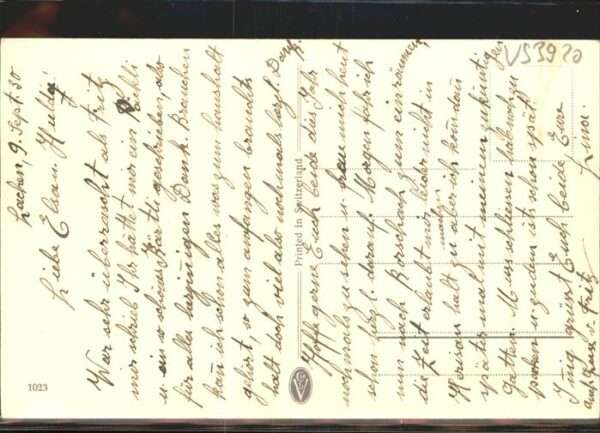 Lachen, 9. Sept. 50
Liebe Eltern, Huldy!
War sehr überrascht als Fritz
mir schrieb Ihr hättet mir ein
u. ein so schönes Kärtli geschrieben, also
für alles herzinnigen Dank. Brauchen
kann ich schon alles was zum Haushalt
gehört, so zum anfangen brauchts
halt doch viel also nochmals herzl. Dank
Hoffe gerne Euch beide dies Jahr
nochmals zu sehen u. freue mich heut
schon herzl. darauf. Morgen
nun nach Rorschach zum einräumen
die Zeit erlaubt mir leider nicht in
Herisau halt zu machen aber ich komme dann
später mal mit meinem zukünftigen
Gatten. Muss schliessen haben noch zu
u. zudem ist schon spät.
Innig grüsst Euch beide Eure
Lina.
auch Gruss v. Fritz
Printed in Switzerland
1023
VS3920